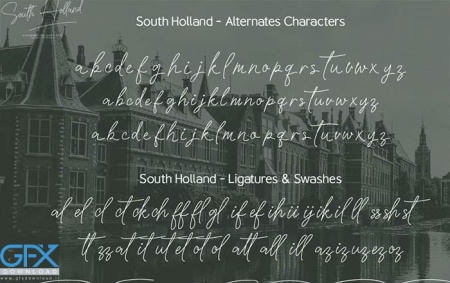 South Holland
South Holland - Alternates Characters
a b c d e f g h i j k l m n o p q r s t u v w x y z
a b c d e f g h i j k l m n o p q r s t u v w x y z
a b c d e f h i j k l m n o p q r s t u v w x y z
South Holland - Ligatures & Swashes
al el cl ct ck ch ff fl gl if ef ih ii ij ik il ll ss sh st
tt zz at it ut et ot ol att all ill az iz uz ez oz
GFX
DOWNLOAD
www.gfxdownload.ir